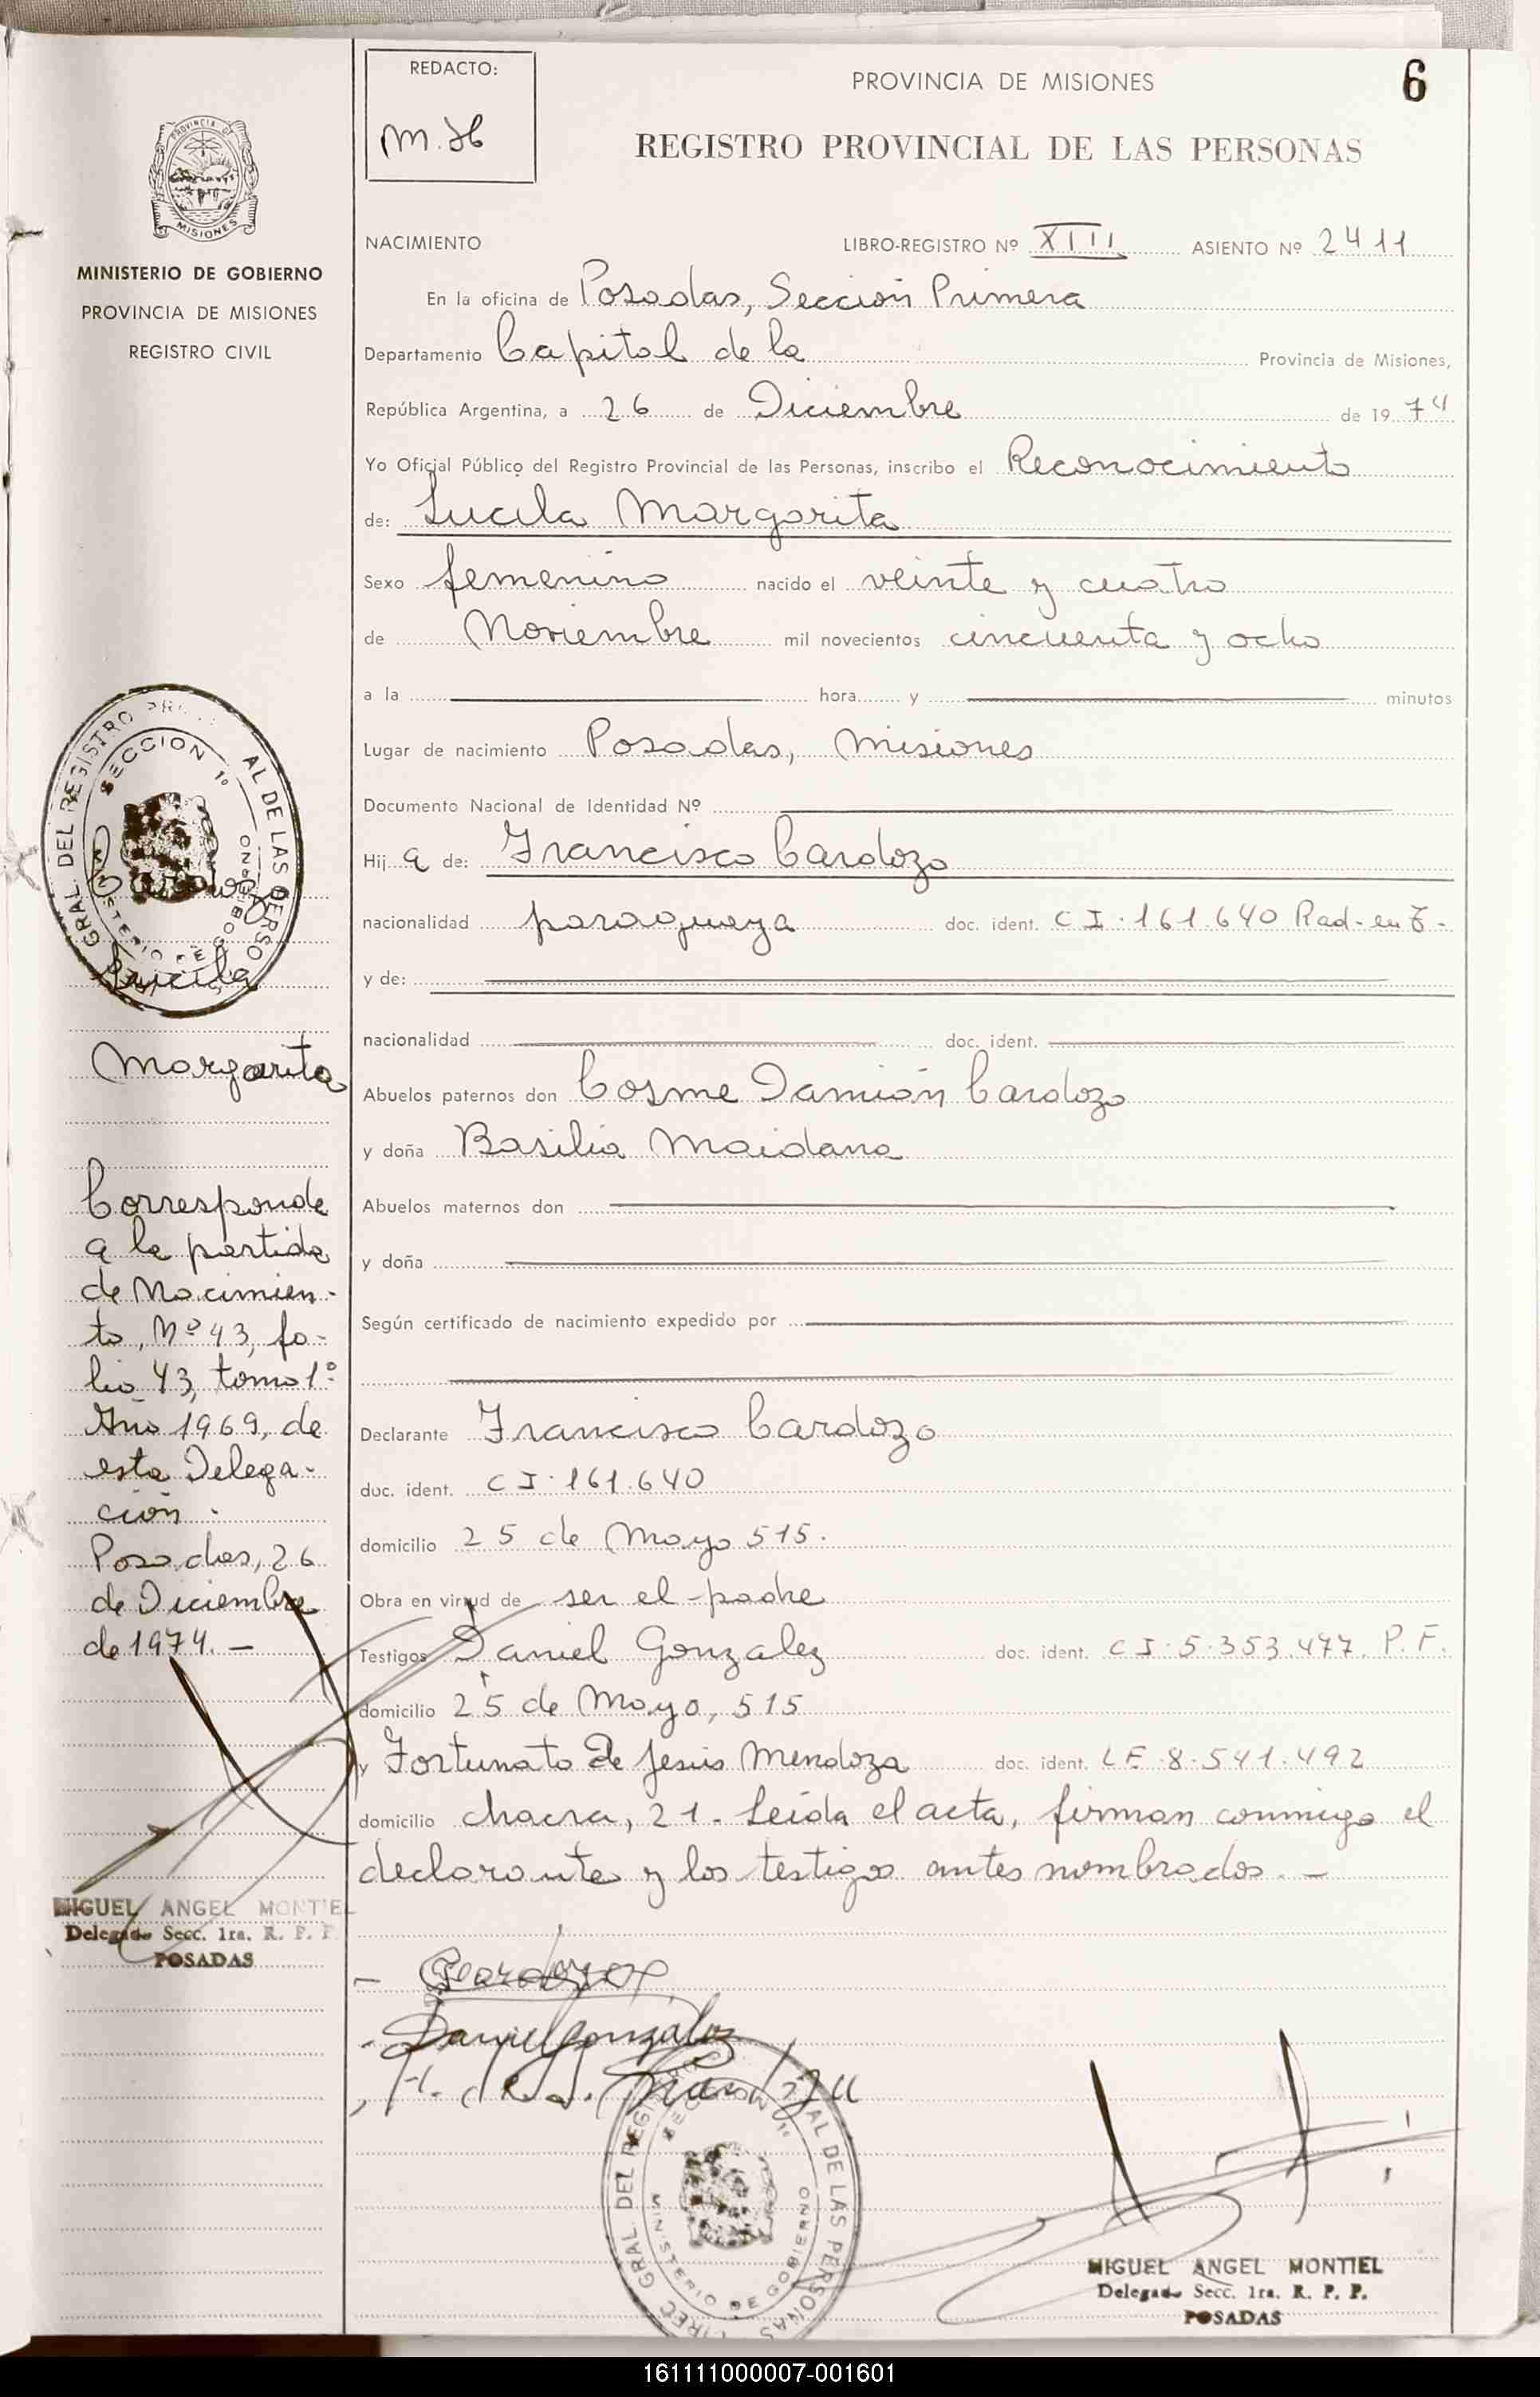 REDACTO:
PROVINCIA DE MISIONES
6
REGISTRO PROVINCIAL DE LAS PERSONAS
NACIMIENTO LIBRO-REGISTRO Nº XIII ASIENTO Nº 2411
En la oficina de Posadas, Sección Primera
Departamento Capital de la Provincia de Misiones,
República Argentina, a 26 de Diciembre de 1974
Yo Oficial Público del Registro Provincial de las Personas, inscribo el Reconocimiento
de: Lucila Margarita
Sexo femenino nacido el veinte y cuatro
de Noviembre mil novecientos cincuenta y ocho
a la hora y minutos
Lugar de nacimiento Posadas, Misiones
Documento Nacional de Identidad Nº
Hij a de: Francisco Cardozo
nacionalidad paraguaya doc. ident. C I. 161.640 Rad- en
y de:
nacionalidad doc. ident.
Abuelos paternos don Cosme Damián Cardozo
y doña Basilia Maidana
Abuelos maternos don
y doña
Según certificado de nacimiento expedido por
Declarante Francisco Cardozo
doc. ident. C I. 161.640
domicilio 25 de Mayo 515.
Obra en virtud de ser el padre
Testigos Daniel Gonzalez doc. ident. C I. 5.353.477. P.F.
domicilio 25 de Mayo, 515
y Fortunato de Jesús Mendoza doc. ident. LE. 8.541.492
domicilio chacra, 21. Leída el acta, firman conmigo el
declarante y los testigos antes nombrados. -
Cardozo
Daniel Gonzalez
MIGUEL ANGEL MONTIEL
Delegado Secc. 1ra. R. P. P.
POSADAS
DIREC. GRAL. DEL REGISTRO AL DE LAS PERSONAS
SECCION 1º
MINISTERIO DE GOBIERNO
PROVINCIA DE
MISIONES
MINISTERIO DE GOBIERNO
PROVINCIA DE MISIONES
REGISTRO CIVIL
GRAL. DEL REGISTRO AL DE LAS PERSO
SECCION 1º
MINISTERIO DE GOBIERNO
Cardozo
Lucila
Margarita
Corresponde
a la partida
de Nacimien-
to, Nº 43, fo-
lio 43, tomo 1º
Año 1969, de
esta Delega-
ción.
Posadas, 26
de Diciembre
de 1974. -
MIGUEL ANGEL MONTIEL
Delegado Secc. 1ra. R. P. P.
POSADAS
161111000007-001601